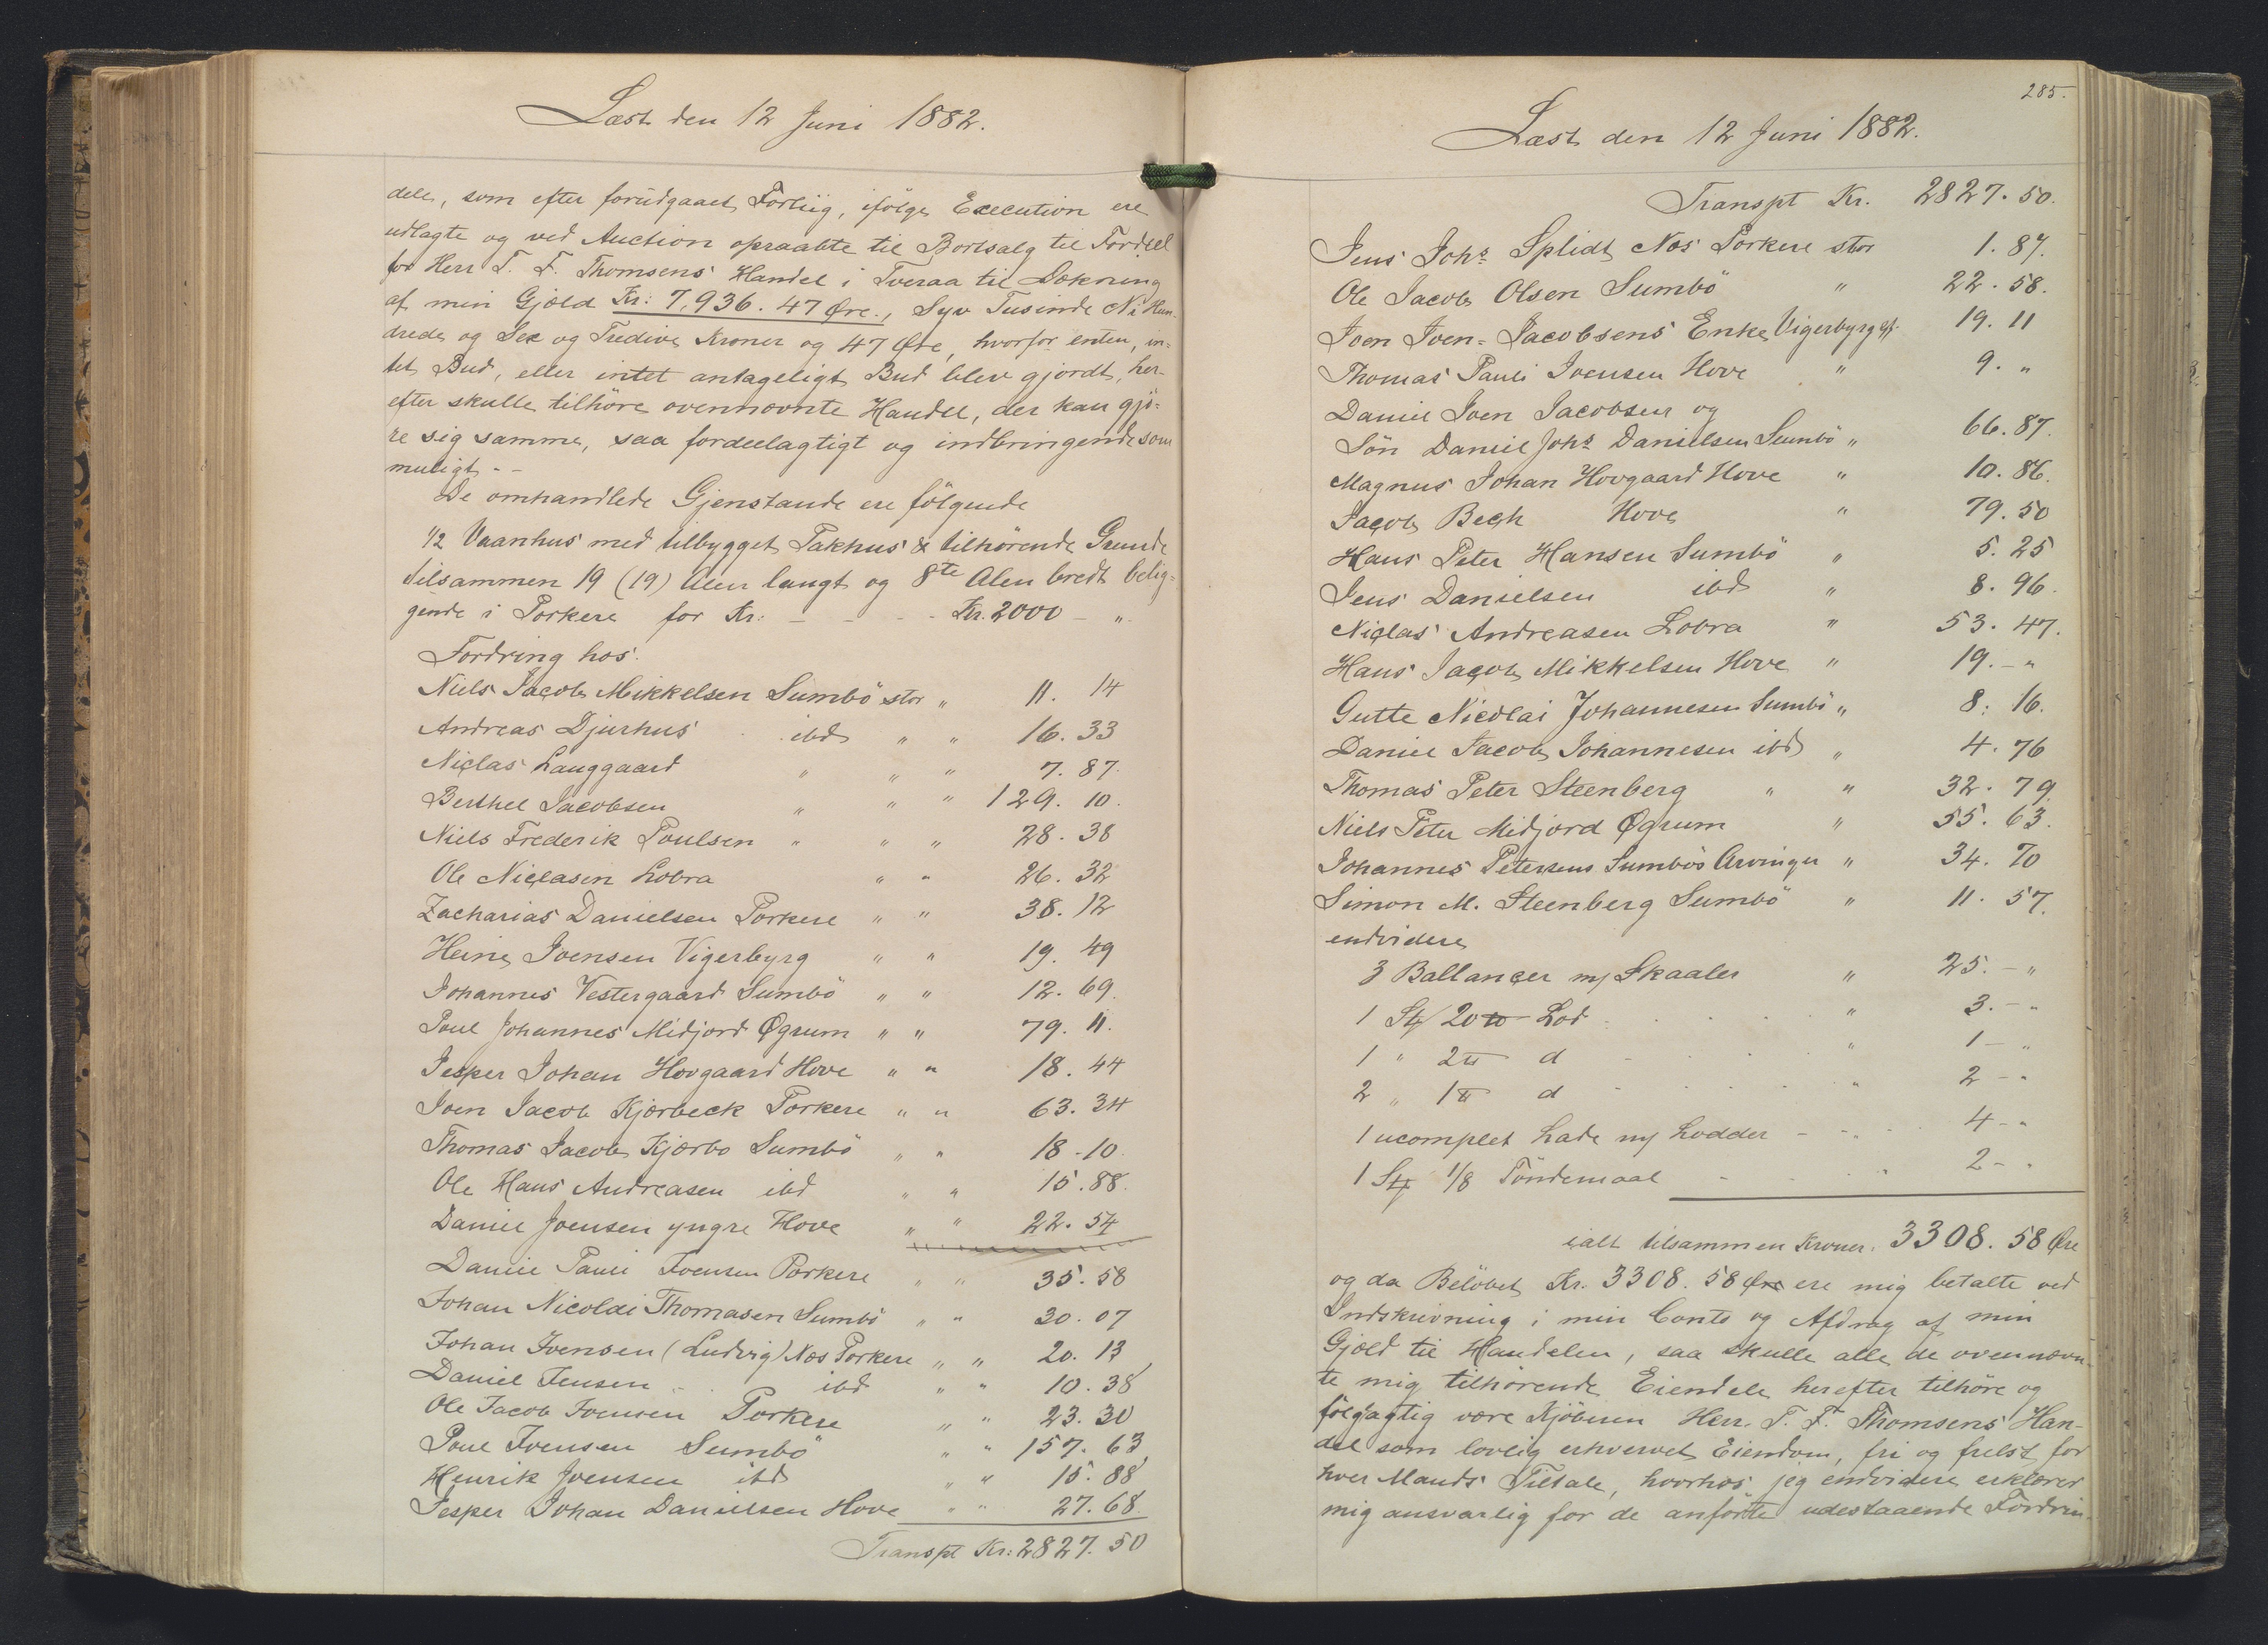 Læst den 12 Juni 1882.
dele, som efter forudgaaet Forliig, ifølge Execution ere
udlagte og ved Auction opraabte til Bortsalg til Fordeel
for Herr T. F. Thomsens Handel i Tveraa til Dækning
af min Gjæld Kr: 7,936. 47 Øre., Syv Tusinde Ni Hun-
drede og Sex og Tredive Kroner og 47 Øre, hvorfor enten, in-
tet Bud, eller intet antageligt Bud blev gjordt, her-
efter skulle tilhöre ovennævnte Handel, der kan gjö-
re sig samme, saa fordeelagtigt og indbringende som
muligt. - -
De omhandlede Gjenstande ere fölgende
1/2 Vaanhus med tilbygget Pakhus & tilhörende Grunde
tilsammen 19 (19) Alen langt og 8te Alen bredt belig-
gende i Porkere for Kr: - - - - Kr. 2000 - "
Fordring hos.
Niels Jacob Mikkelsen Sumbö stor " 11. 14
Andreas Djurhus ibd " " 16. 33
Niclas Langgaard " " " 7. 87
Berthel Jacobsen " " " 129. 10.
Niels Frederik Poulsen " " " 28. 38
Ole Niclasen Lobra " " 26. 32
Zacharias Danielsen Porkere " " 38. 12
Heine Joensen Vigerbyrg " " 19. 49
Johannes Vestergaard Sumbö " " 12. 69.
Poul Johannes Midjord Øgrum " " 79. 11.
Jesper Johan Hovgaard Hove " " 18. 44
Joen Jacob Kjærbeck Porkere " " 63. 34
Thomas Jacob Kjærbo Sumbö " " 18. 10.
Ole Hans Andreasen ibd " " 15. 88.
Daniel Joensen yngre Hove " " 22. 54
Daniel Pauli Joensen Porkere " " 35. 58
Johan Nicolai Thomasen Sumbö " " 30. 07
Johan Joensen (Ludvig) Næs Porkere " " 20. 13
Daniel Jensen ibd " " 10. 38
Ole Jacob Joensen Porkere " " 23. 30
Poul Joensen Sumbö " " 157. 63
Henrik Joensen ibd " " 15. 88
Jesper Johan Danielsen Hove " " 27. 68
Transpt Kr: 2827. 50
285.
Læst den 12 Juni 1882.
Transpt Kr. 2827. 50.
Jens Johs Splidt Næs Porkere stor 1. 87.
Ole Jacob Olsen Sumbö " 22. 58.
Joen Joen-Jacobsens Enke Vigerbyrg 19. 11
Thomas Pauli Joensen Hove " 9. "
Daniel Joen Jacobsen og
Sön Daniel Johs Danielsen Sumbö " 66. 87.
Magnus Johan Hovgaard Hove " 10. 86.
Jacob Bech Hove " 79. 50
Hans Peter Hansen Sumbö " 5. 25
Jens Danielsen ibd " 8. 96.
Niclas Andreasen Lobra " 53. 47.
Hans Jacob Mikkelsen Hove " 19. - "
Gutte Nicolai Johannesen Sumbö " 8: 16.
Daniel Jacob Johannesen ibd " 4. 76
Thomas Peter Steenberg " " 32. 79
Niels Peter Midjord Øgrum " 55. 63.
Johannes Petersens Sumbös Arvinger " 34. 70
Simon M. Steenberg Sumbö " 11. 57.
endvidere
3 Ballancer m/ Skaaler " 25. - "
1 Stk 20 ℔ Lod " 3. - "
1 " 2 ℔ d " 1 - "
2 " 1 ℔ d " 2 - "
1 ucomplet Lade m/ Lodder - - " 4 - "
1 Stk 1/8 Töndemaal - " 2 - "
ialt tilsammen Kroner. 3308. 58 Øre
og da Belöbet Kr. 3308. 58 Øre ere mig betalte ved
Indskrivning i min Conto og Afdrag af min
Gjæld til Handelen, saa skulle alle de ovennævn-
te mig tilhörende Eiendele herefter tilhöre og
fölgagtig være Kjöberen Herr. T. F. Thomsens Han-
del som lovlig erhvervet Eiendom, fri og frelst for
hver Mands Tiltale, hvorhos jeg endvidere erklærer
mig ansvarlig for de anförte udestaaende Fordrin-